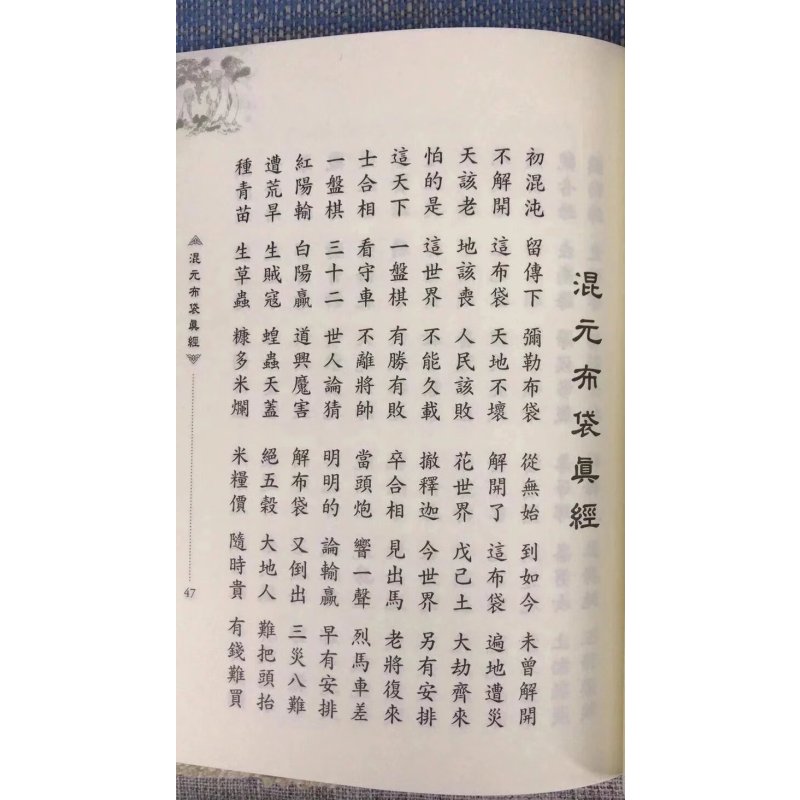 混元布袋眞經
初混沌 留傳下 彌勒布袋 從無始 到如今 未曾解開
不解開 這布袋 天地不壞 解開了 這布袋 遍地遭災
天該老 地該喪 人民該敗 花世界 戊己土 大劫齊來
怕的是 這世界 不能久載 撤釋迦 今世界 另有安排
這天下 一盤棋 有勝有敗 卒合相 見出馬 老將復來
士合相 看守車 不離將帥 當頭炮 響一聲 烈馬車差
一盤棋 三十二 世人論猜 明明的 論輸贏 早有安排
紅陽輸 白陽贏 道興魔害 解布袋 又倒出 三災八難
遭荒旱 生賊寇 蝗蟲天蓋 絕五穀 大地人 難把頭抬
種青苗 生草蟲 糠多米爛 米糧價 隨時貴 有錢難買
混元布袋眞經
47